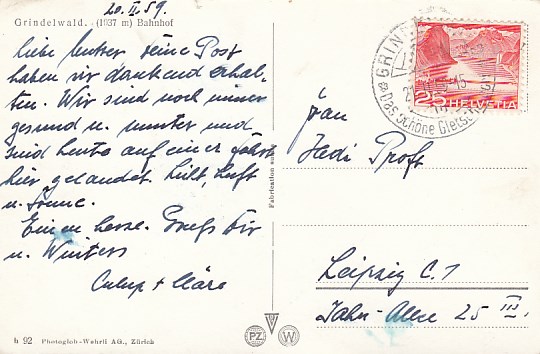 20.II.59.
Grindelwald. (1037 m) Bahnhof
Liebe Mutter deine Post
haben wir dankend erhal-
ten. Wir sind noch immer
gesund u. munter und
sind heute auf einer Fahrt
hier gelandet. Luft
u. Sonne.
Einen herzl. Gruß Dir
u.
+ Kläre
h 92 Photoglob-Wehrli AG., Zürich
Fabrication
PZ W
GRIN
Das Schöne Gletsch
25 HELVETIA
Frau
Hedi Proft
Leipzig C.1
Jahn-Allee 25 III.